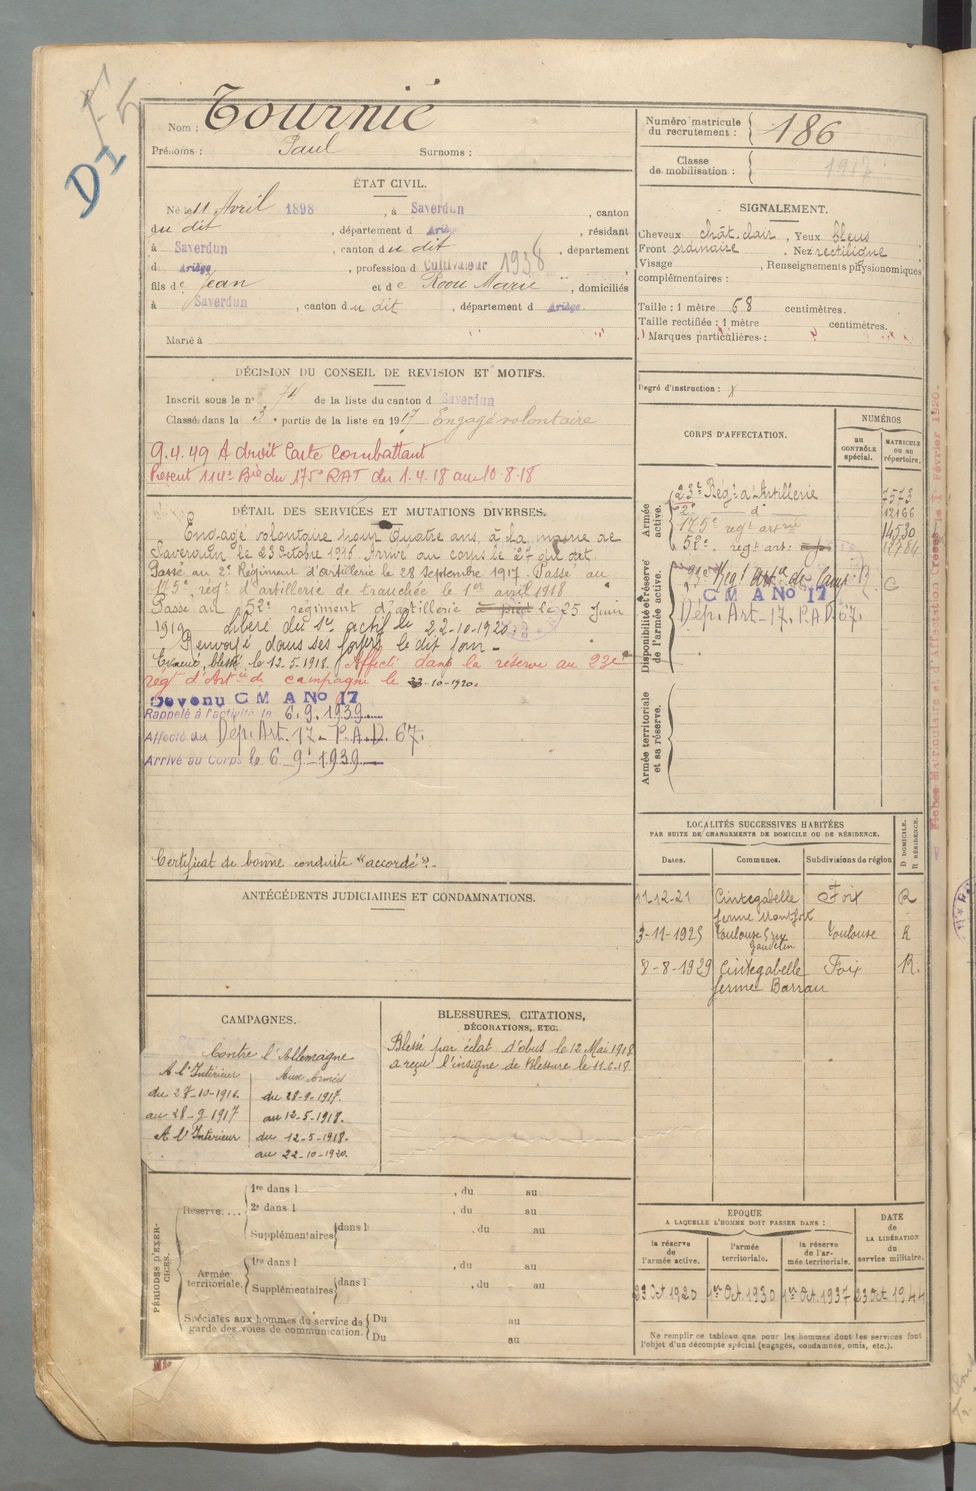 Nom : Tournié
Prénoms : Paul Surnoms :
ÉTAT CIVIL.
Né le 11 Avril 1898, à Saverdun, canton
du dit, département d Ariège, résidant
à Saverdun, canton du dit, département
d Ariège, profession d Cultivateur 1938
fils de Jean et de Marie, domiciliés
à Saverdun, canton du dit, département d Ariège.
Marié à
DÉCISION DU CONSEIL DE REVISION ET MOTIFS.
Inscrit sous le n° 74 de la liste du canton d Saverdun
Classé dans la 3e partie de la liste en 1917 Engagé volontaire
9.4.49 A droit Carte Combattant
Présent 114e Bie du 175e RAT du 1.4.18 au 10-8-18
DÉTAIL DES SERVICES ET MUTATIONS DIVERSES.
Engagé volontaire pour quatre ans, à la mairie de
Saverdun, le 23 Octobre 1916. Arrivé au corps le 27 du dit.
Passé au 2e Régiment d'artillerie le 28 Septembre 1917. Passé au
175e rég. d'artillerie de tranchée le 1er avril 1918
Passé au 52e régiment d'artillerie à pied le 25 Juin
1919. Libéré du Sce actif le 22-10-1920
Renvoyé dans ses foyers le dit jour -
Evacué, blessé le 12.5.1918. Affecté dans la réserve au 23e
régt d'Artie de campagne le 22-10-1920.
Devenu C M A No 17
Rappelé à l'activité le 6.9.1939
Affecté au Dép. Art. 17 - P.A.D. 67.
Arrivé au Corps le 6 9 1939
Certificat de bonne conduite "accordé".
ANTÉCÉDENTS JUDICIAIRES ET CONDAMNATIONS.
CAMPAGNES.
Contre l'Allemagne
A l'Intérieur Aux Armées
du 27-10-1916. du 28-9-1917.
au 28-9-1917 au 12-5-1918.
A l'Intérieur du 12-5-1918.
au 22-10-1920.
BLESSURES, CITATIONS,
DÉCORATIONS, ETC.
Blessé par éclat d'obus le 12 Mai 1918
a reçu l'insigne de Blessure le 11.6.18.
PÉRIODES D'EXERCICES.
Réserve.... 1re dans l , du au
2e dans l , du au
Supplémentaires dans l , du au
Armée territoriale. 1re dans l , du au
Supplémentaires dans l , du au
Spéciales aux hommes du service de garde des voies de communication. Du au
Du au
Numéro matricule du recrutement : 186
Classe de mobilisation : 1917
SIGNALEMENT.
Cheveux chât. clair, Yeux bleus
Front ordinaire, Nez rectiligne
Visage , Renseignements physionomiques
complémentaires :
Taille : 1 mètre 68 centimètres.
Taille rectifiée : 1 mètre centimètres.
Marques particulières :
Degré d'instruction :
CORPS D'AFFECTATION.
NUMÉROS
au CONTRÔLE spécial. MATRICULE ou au répertoire.
Armée active.
23e Régt d'Artillerie 7573
2e d° 12166
175e regt artie 14530
52e regt art. à pied
Disponibilité et réserve de l'armée active.
C M A No 17
Dép. Art. 17. P.A.D. 67.
Armée territoriale et sa réserve.
LOCALITÉS SUCCESSIVES HABITÉES
PAR SUITE DE CHANGEMENTS DE DOMICILE OU DE RÉSIDENCE.
Dates. Communes. Subdivisions de région D DOMICILE. R RÉSIDENCE.
11-12-21 Cintegabelle Foix R
ferme Montfort
3-11-1925 Toulouse Toulouse R
8-8-1929 Cintegabelle Foix R.
ferme Barrau
EPOQUE
A LAQUELLE L'HOMME DOIT PASSER DANS :
DATE de LA LIBÉRATION du service militaire.
la réserve de l'armée active. l'armée territoriale. la réserve de l'armée territoriale.
23 Oct 1920 1er Oct. 1930 1er Oct. 1937 23 Oct 1944
Ne remplir ce tableau que pour les hommes dont les services font
l'objet d'un décompte spécial (engagés, condamnés, omis, etc.).